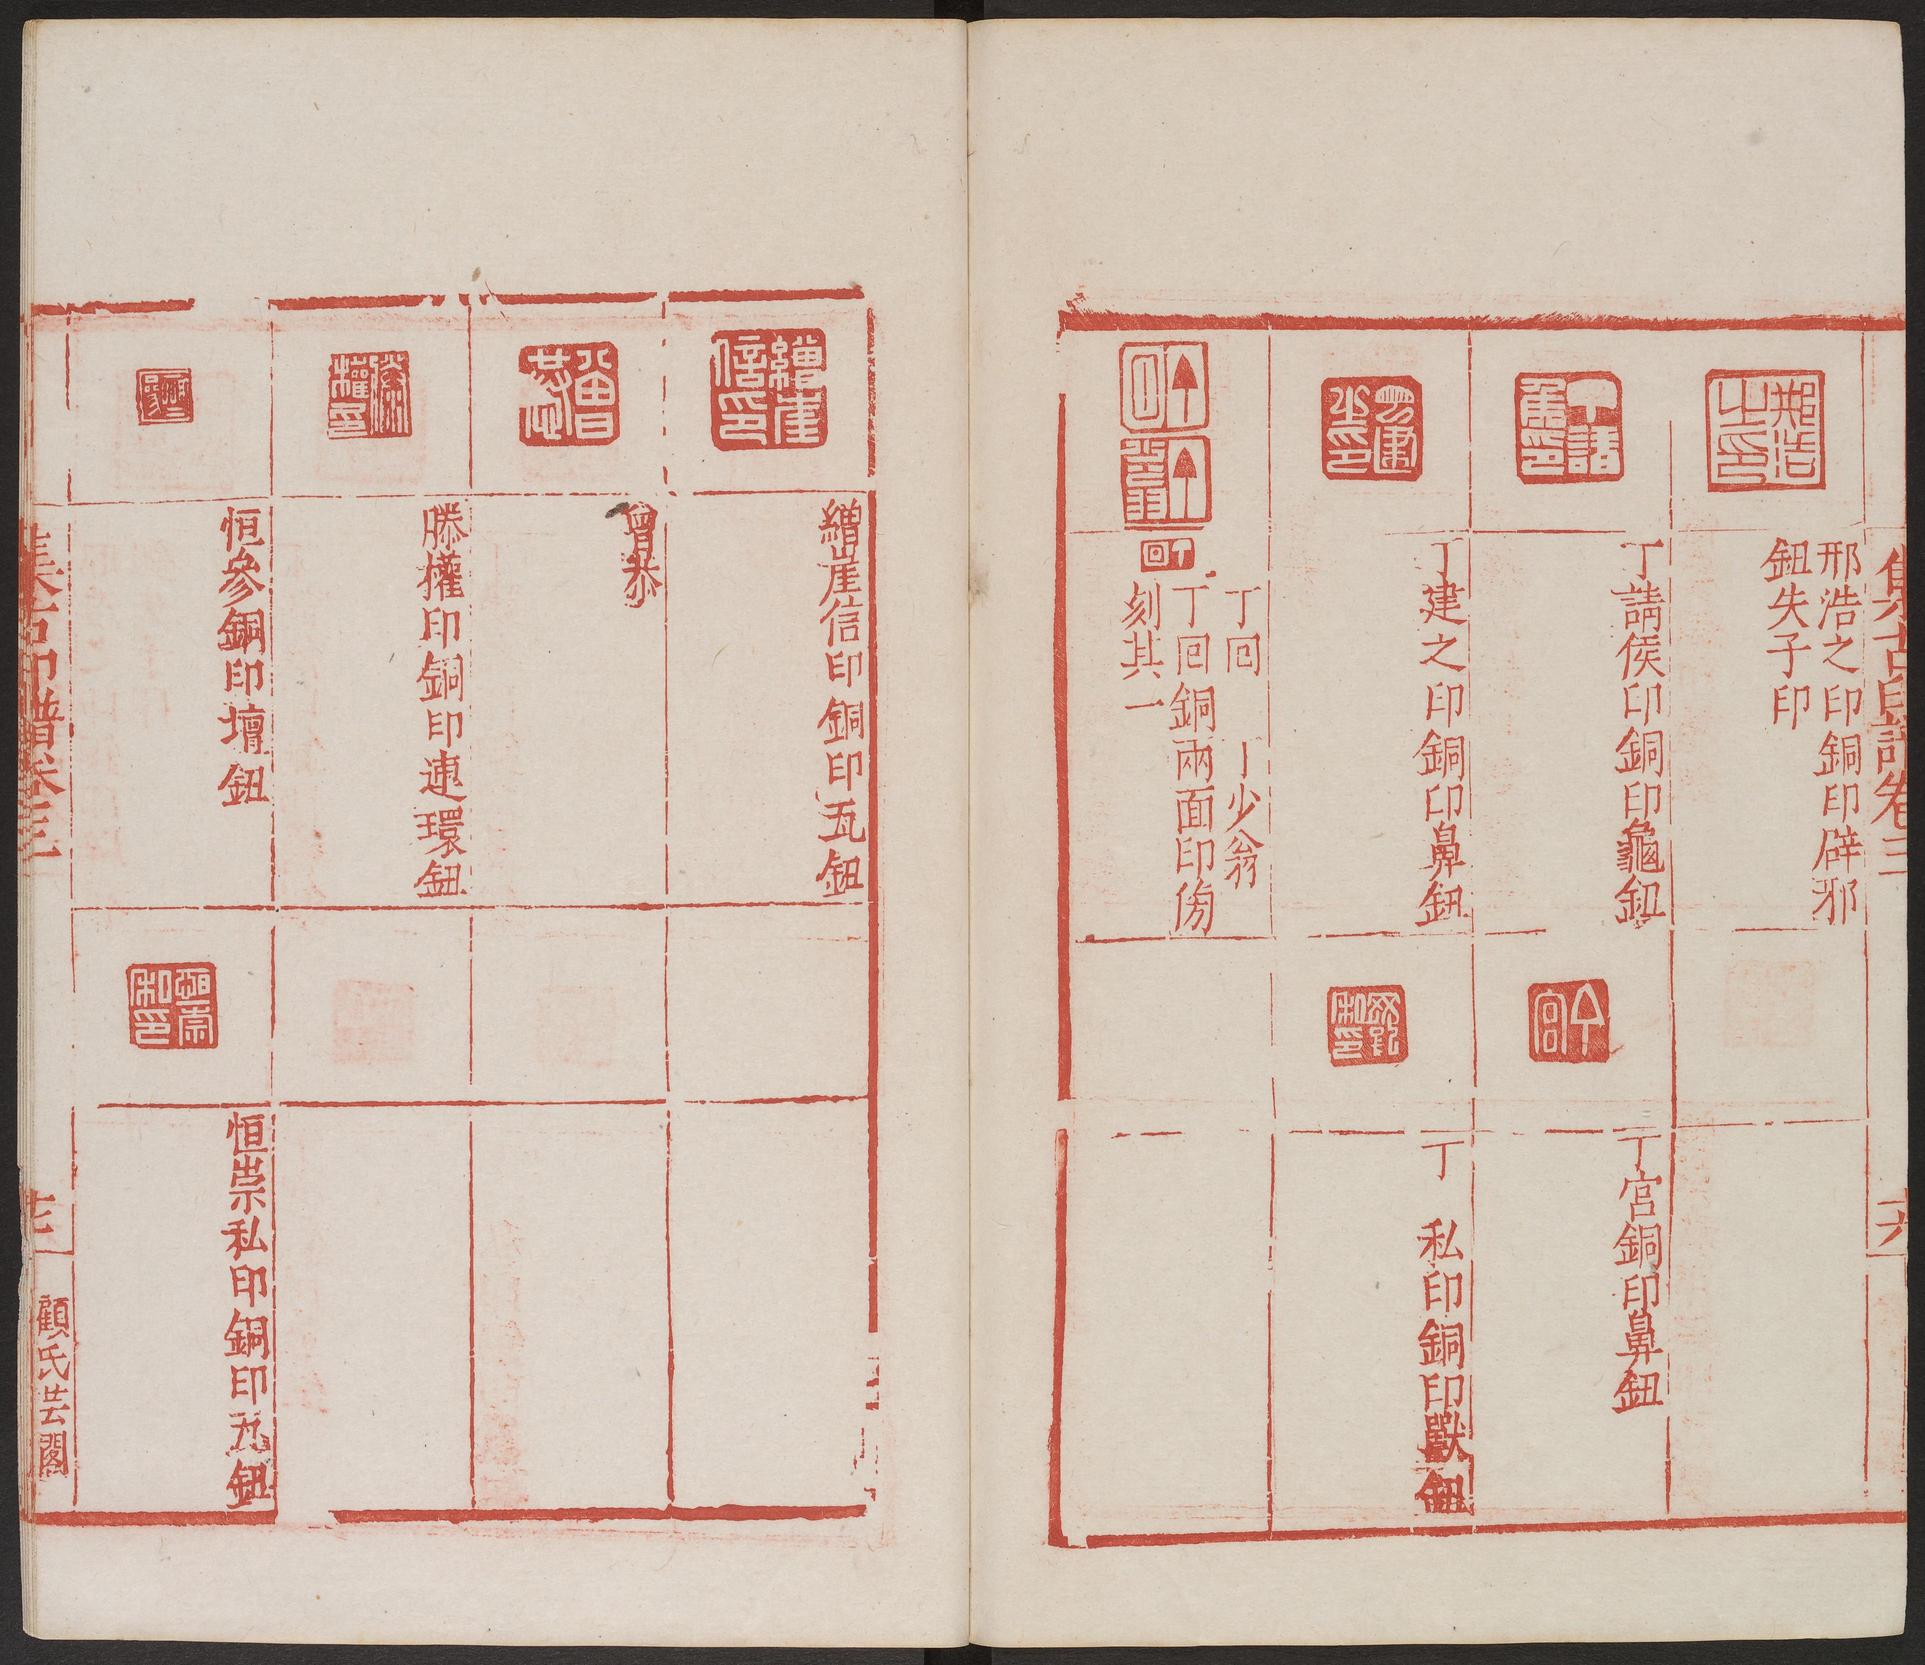 集古印譜卷三
六
邢浩之印銅印辟邪
鈕失子印
丁請侯印銅印龜鈕
丁宮銅印鼻鈕
丁建之印銅印鼻鈕
丁 私印銅印獸鈕
丁回 丁少翁
丁回銅兩面印傍
刻其一
繒崖信印銅印瓦鈕
曾恭
滕權印銅印連環鈕
恒參銅印壇鈕
恒崇私印銅印瓦鈕
集古印譜卷三
顧氏芸閣